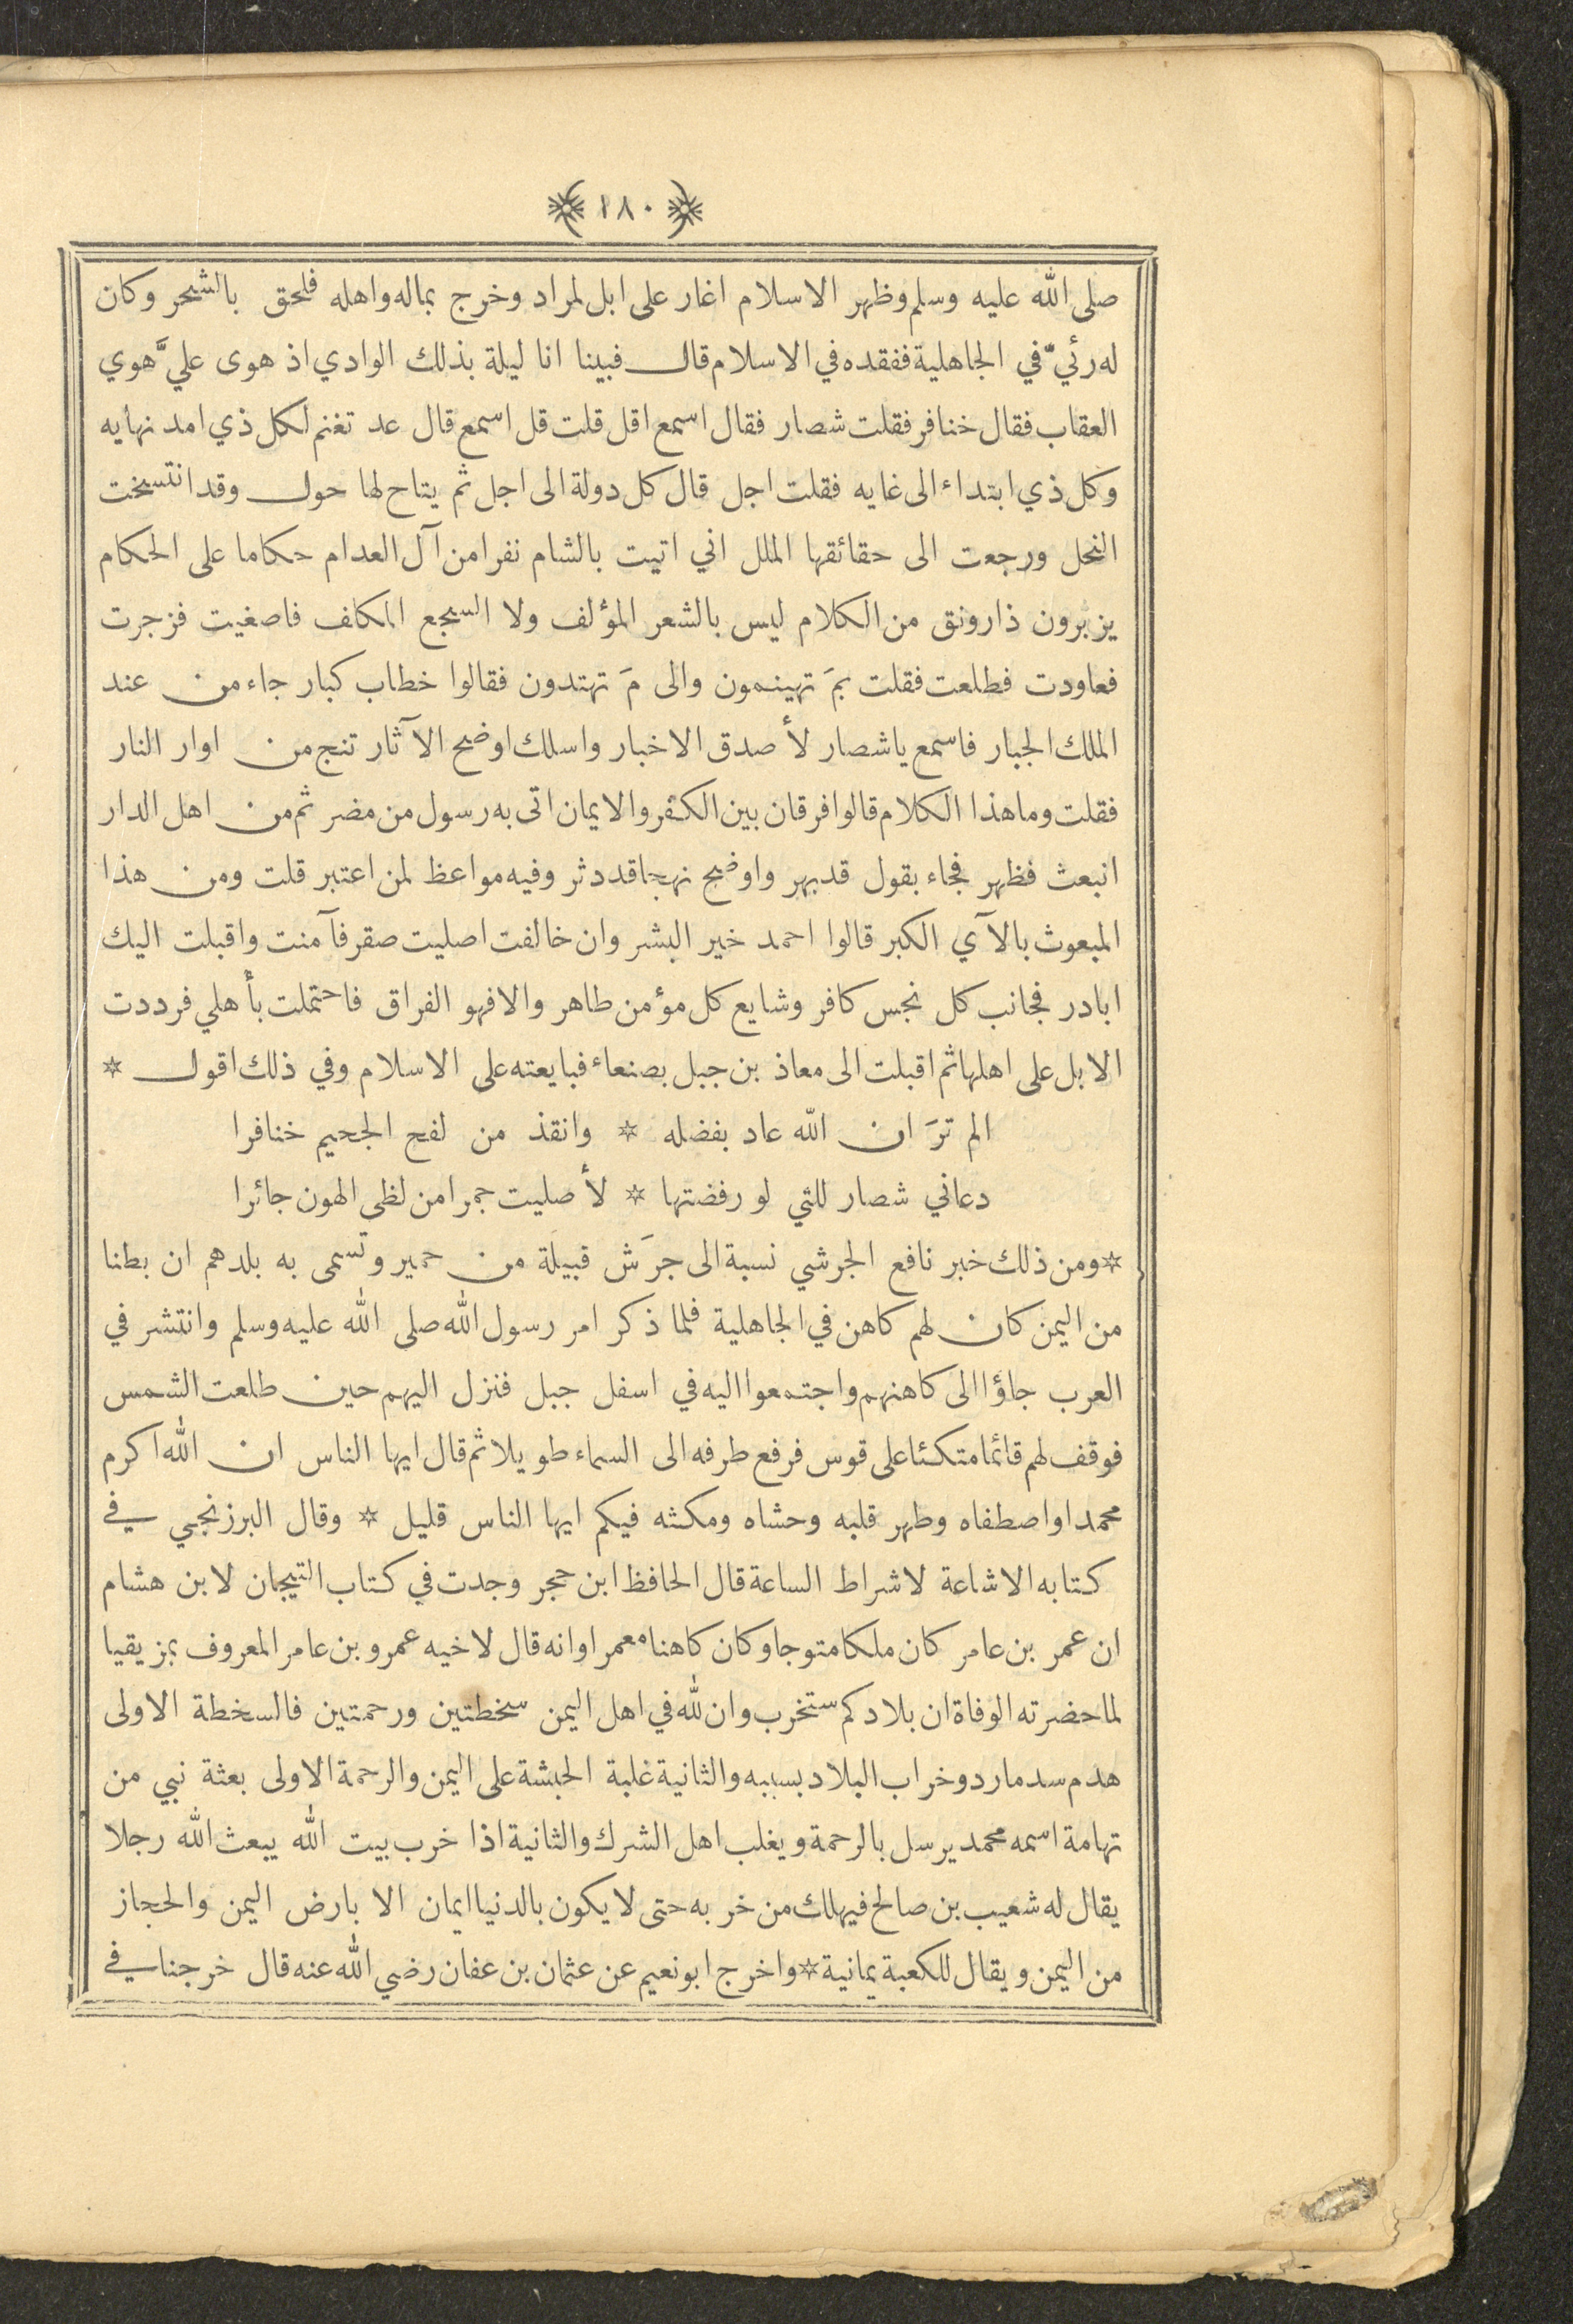 ١٨٠
صلى الله عليه وسلم وظهر الاسلام اغار على ابل لمراد وخرج بماله واهله فلحق بالشحر وكان
له رئيّ في الجاهلية ففقده في الاسلام قال فبينا انا ليلة بذلك الوادي اذ هوى عليَّ هوي
العقاب فقال خنافر فقلت شصار فقال اسمع اقل قلت قل اسمع قال عد تغنم لكل ذي امد نهايه
وكل ذي ابتداء الى غايه فقلت اجل قال كل دولة الى اجل ثم يتاح لها حول وقد انتسخت
النحل ورجعت الى حقائقها الملل اني اتيت بالشام نفرا من آل العدام حكاما على الحكام
يزبرون ذا رونق من الكلام ليس بالشعر المؤلف ولا السجع المكلف فاصغيت فزجرت
فعاودت فطلعت فقلت بمَ تهينمون والى مَ تهتدون فقالوا خطاب كبار جاء من عند
الملك الجبار فاسمع يا شصار لأصدق الاخبار واسلك اوضح الآثار تنج من اوار النار
فقلت وما هذا الكلام قالوا فرقان بين الكفر والايمان اتى به رسول من مضر ثم من اهل الدار
انبعث فظهر فجاء بقول قد بهر واوضح نهجا قد دثر وفيه مواعظ لمن اعتبر قلت ومن هذا
المبعوث بالآي الكبر قالوا احمد خير البشر وان خالفت اصليت صقر فآمنت واقبلت اليك
ابادر فجانب كل نجس كافر وشايع كل مؤمن طاهر والا فهو الفراق فاحتملت بأهلي فرددت
الابل على اهلها ثم اقبلت الى معاذ بن جبل بصنعاء فبايعته على الاسلام وفي ذلك اقول *
الم ترَ ان الله عاد بفضله * وانقذ من لفح الجحيم خنافرا
دعاني شصار للتي لو رفضتها * لأصليت جمرا من لظى الهون جائرا
* ومن ذلك خبر نافع الجرشي نسبة الى جرَش قبيلة من حمير وتسمى به بلدهم ان بطنا
من اليمن كان لهم كاهن في الجاهلية فلما ذكر امر رسول الله صلى الله عليه وسلم وانتشر في
العرب جاؤا الى كاهنهم واجتمعوا اليه في اسفل جبل فنزل اليهم حين طلعت الشمس
فوقف لهم قائما متكئا على قوس فرفع طرفه الى السماء طويلا ثم قال ايها الناس ان الله اكرم
محمدا واصطفاه وطهر قلبه وحشاه ومكثه فيكم ايها الناس قليل * وقال البرزنجي في
كتابه الاشاعة لاشراط الساعة قال الحافظ ابن حجر وجدت في كتاب التيجان لابن هشام
ان عمر بن عامر كان ملكا متوجا وكان كاهنا معمرا وانه قال لاخيه عمرو بن عامر المعروف بمزيقيا
لما حضرته الوفاة ان بلادكم ستخرب وان لله في اهل اليمن سخطتين ورحمتين فالسخطة الاولى
هدم سد مارد وخراب البلاد بسببه والثانية غلبة الحبشة على اليمن والرحمة الاولى بعثة نبي من
تهامة اسمه محمد يرسل بالرحمة ويغلب اهل الشرك والثانية اذا خرب بيت الله يبعث الله رجلا
يقال له شعيب بن صالح فيهلك من خربه حتى لا يكون بالدنيا ايمان الا بارض اليمن والحجاز
من اليمن ويقال للكعبة يمانية * واخرج ابو نعيم عن عثمان بن عفان رضي الله عنه قال خرجنا في